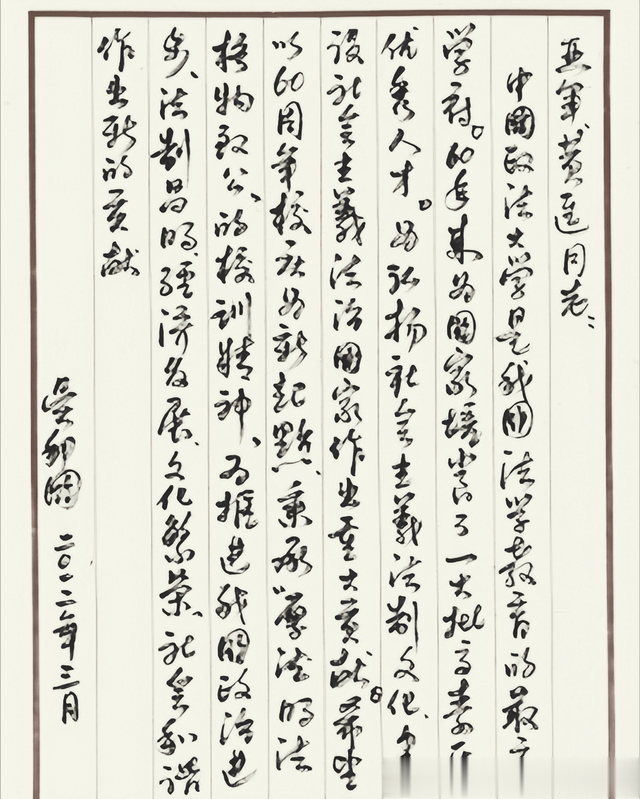 亚军、黄進同志:
中國政法大学是我国法学教育的最高
学府。60年来为國家培养了一大批高素质
优秀人才。为弘扬社会主義法制文化、建
设社会主義法治国家作出重大贡献。希望
以60周年校庆为新起點、秉承“厚德明法
格物致公”的校训精神、为推進我国政治進
步、法制昌明、經济发展、文化繁荣、社会和谐
作出新的贡献
吴邦國
二〇一二年三月